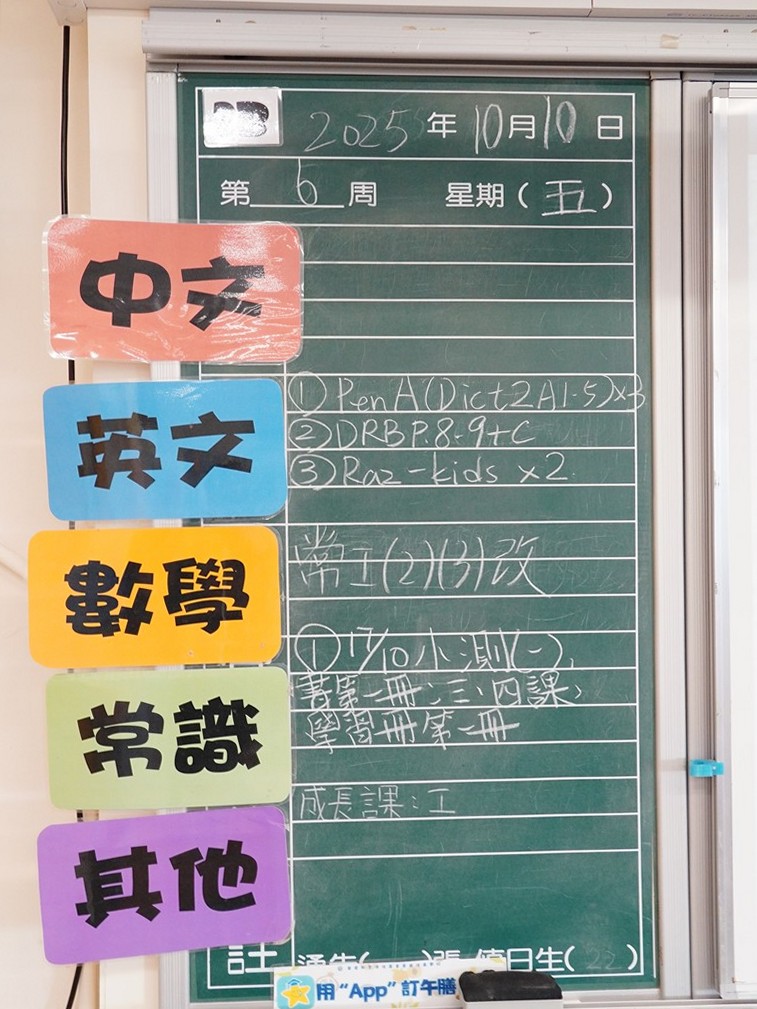 2B
2025年10月10日
第6周 星期(五)
中文
英文
①PenA(Dict2A1-5)x3
②DRBP.8-9+C
③Raz-kids x2
數學
常工(2)(3)改
常識
①17/10小測(一),
書第一冊:三、四課,
學習冊第一冊
成長課:工
其他
註 通告( )張 值日生(22)
用“App”訂午膳